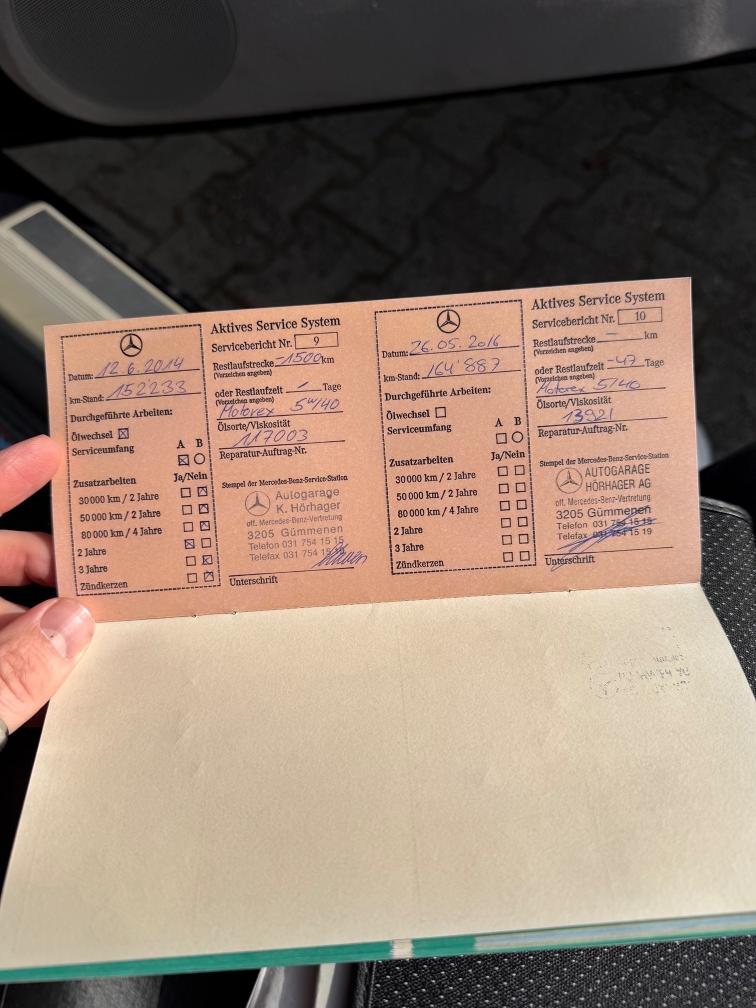 Aktives Service System
Datum: 12.6.2014
km-Stand: 152233
Durchgeführte Arbeiten:
Ölwechsel
Serviceumfang
A B
Zusatzarbeiten Ja/Nein
30 000 km / 2 Jahre
50 000 km / 2 Jahre
80 000 km / 4 Jahre
2 Jahre
3 Jahre
Zündkerzen
Servicebericht Nr. 9
Restlaufstrecke -1500 km
(Vorzeichen angeben)
oder Restlaufzeit - Tage
(Vorzeichen angeben)
Motorex 5W/40
Ölsorte/Viskosität
117003
Reparatur-Auftrag-Nr.
Stempel der Mercedes-Benz-Service-Station
Autogarage
K. Hörhager
off. Mercedes-Benz-Vertretung
3205 Gümmenen
Telefon 031 754 15 15
Telefax 031 754 15
Unterschrift
Aktives Service System
Datum: 26.05.2016
km-Stand: 164'887
Durchgeführte Arbeiten:
Ölwechsel
Serviceumfang
A B
Zusatzarbeiten Ja/Nein
30 000 km / 2 Jahre
50 000 km / 2 Jahre
80 000 km / 4 Jahre
2 Jahre
3 Jahre
Zündkerzen
Servicebericht Nr. 10
Restlaufstrecke - km
(Vorzeichen angeben)
oder Restlaufzeit -47 Tage
(Vorzeichen angeben)
Motorex 5/40
Ölsorte/Viskosität
13921
Reparatur-Auftrag-Nr.
Stempel der Mercedes-Benz-Service-Station
AUTOGARAGE
HÖRHAGER AG
off. Mercedes-Benz-Vertretung
3205 Gümmenen
Telefon 031 754 15 15
Telefax 031 754 15 19
Unterschrift